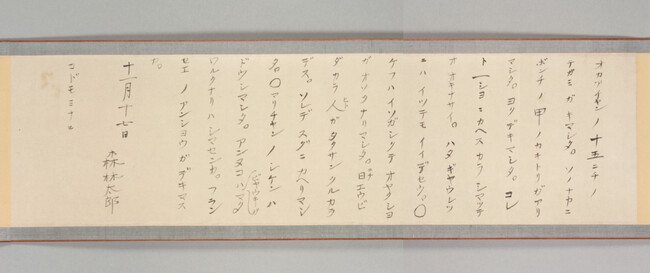 オカアチャン ノ 十五ニチ ノ
テガミ ガ キマシタ。 ソノナカニ
ボンチ ノ 甲 ノ カキトリ ガ アリ
マシタ。 ヨク デキマシタ。 コレ
ト 一ショ ニ カヘス カラ シマツテ
オ オキナサイ。 ハタ ギヤウレツ
ニハ イツデモ イイデセウ。 〇
ケフハ イソガシクテ オヤクシヨ
ガ オソクナリマシタ。 日エウビ
ダカラ 人ガ タクサン クルカラ
デス。 ソレデ スグニ カヘリマシ
タ。 〇マリチヤン ノ シケン ハ
ドウシマシタ。 アンヌコハ マダ
ワルクナリハ シマセンカ。 フラン
セエ ノ アンシヨウ ガ デキマス
カ。
十一月十七日
森林太郎
コドモ ミナニ